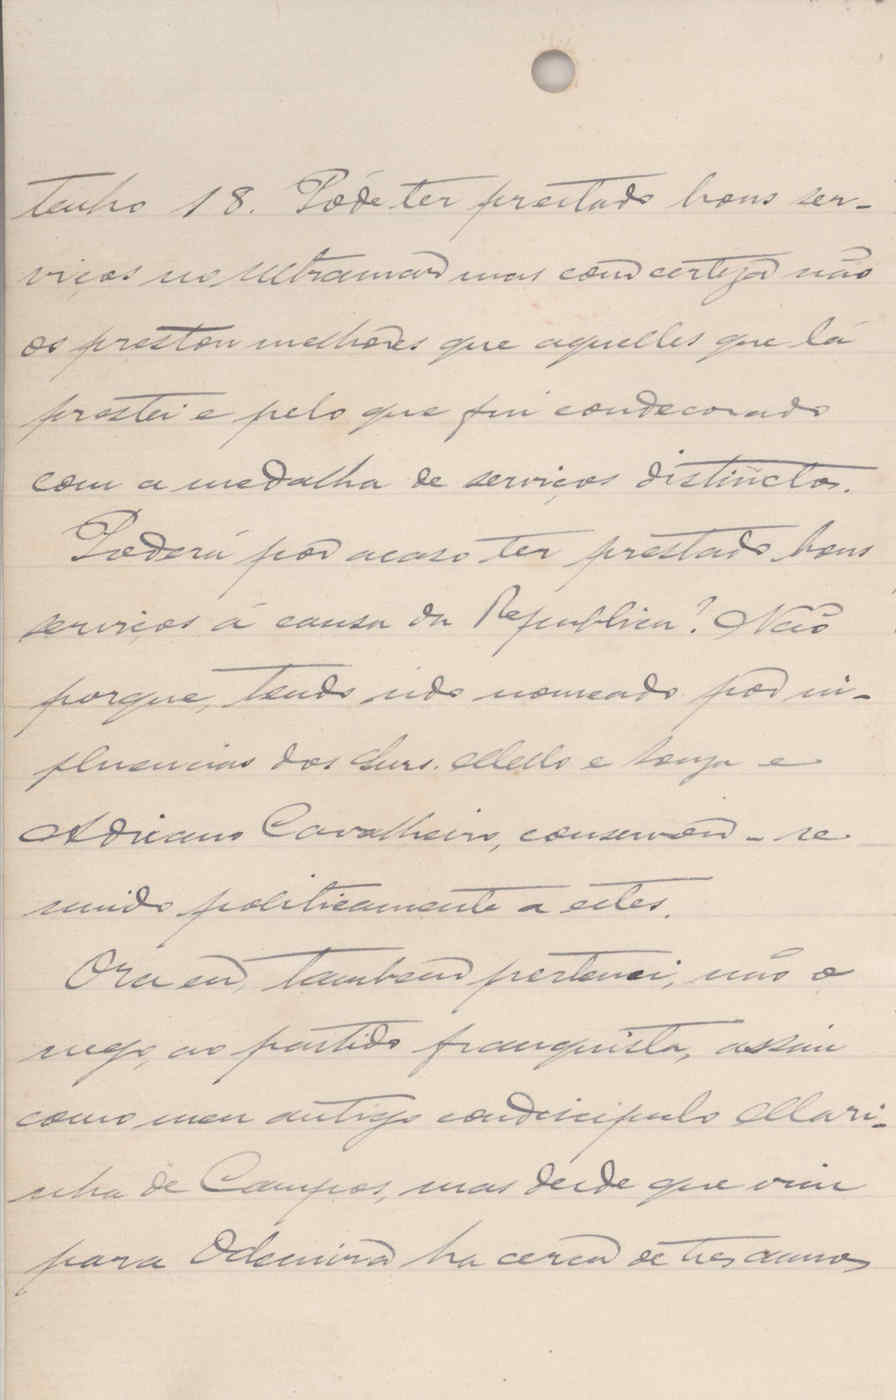 tenho 18. Póde ter prestado bons ser-
viços no Ultramar mas com certeza não
os prestou melhores que aquelles que lá
prestei e pelo que fui condecorado
com a medalha de serviços distinctos.
Poderá por acaso ter prestado bons
serviços á causa da Republica? Não
porque, tendo sido nomeado por in-
fluencias dos Snrs. Mello e Souza e
Adriano Cavalheiro, conservou-se
unido politicamente a estes.
Ora eu, tambem pertenci, não o
nego, ao partido franquista, assim
como meu antigo condiscipulo Mari-
nha de Campos, mas desde que vim
para Odemira ha cerca de tres annos